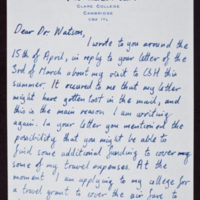 CLARE COLLEGE
CAMBRIDGE
CB2 1TL
Dear Dr. Watson,
I wrote to you around the
15th of April, in reply to your letter of the
3rd of March about my visit to CSH this
summer. It occured to me that my letter
might have gotten lost in the mail, and
this is the main reason I am writing
again. In your letter you mentioned the
possibility that you might be able to
find some additional funding to cover my
some of my travel expenses. At the
moment I am applying to my college for
a travel grant to cover the air fare to